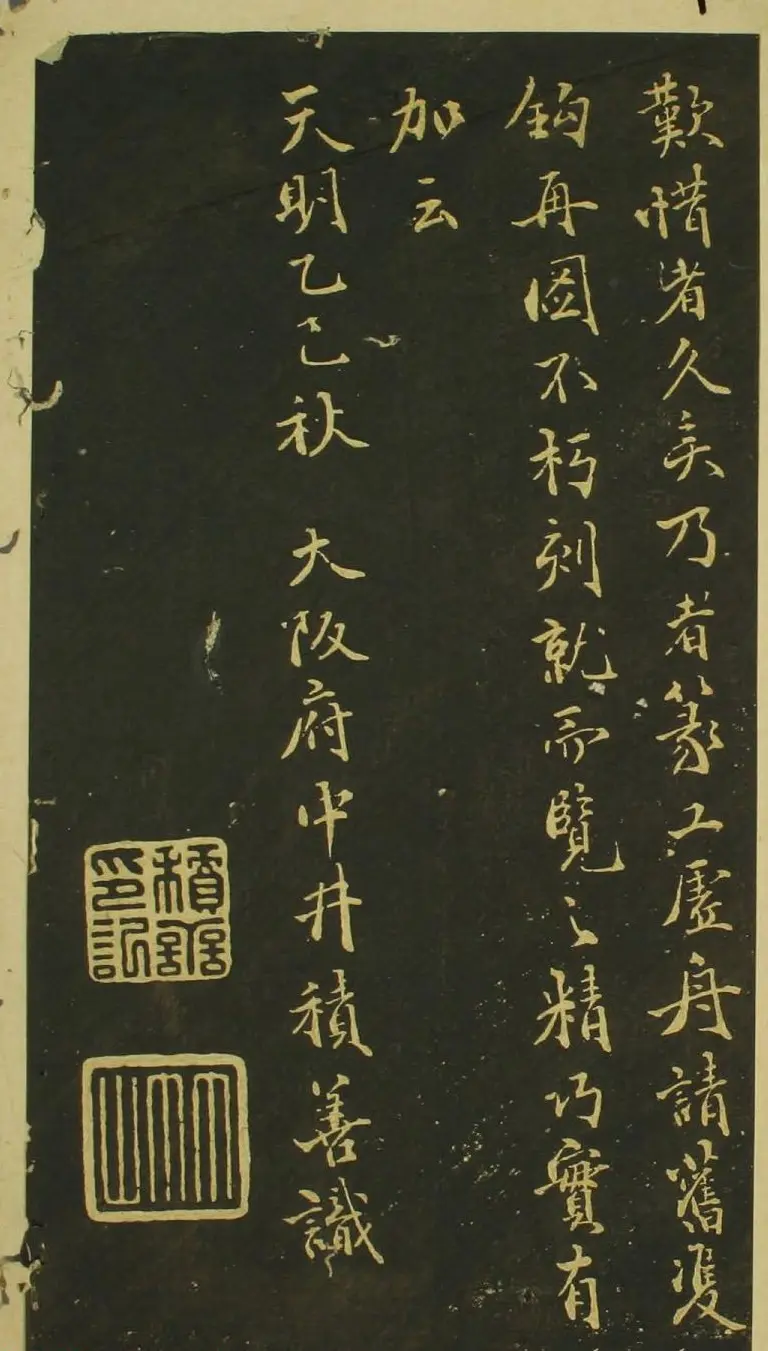 歎惜者久矣乃者篆工虛舟請舊雙
鈎再圖不朽刻就而覽之精巧實有
加云
天明乙巳秋　大阪府中井積善識
積善印記
竹山